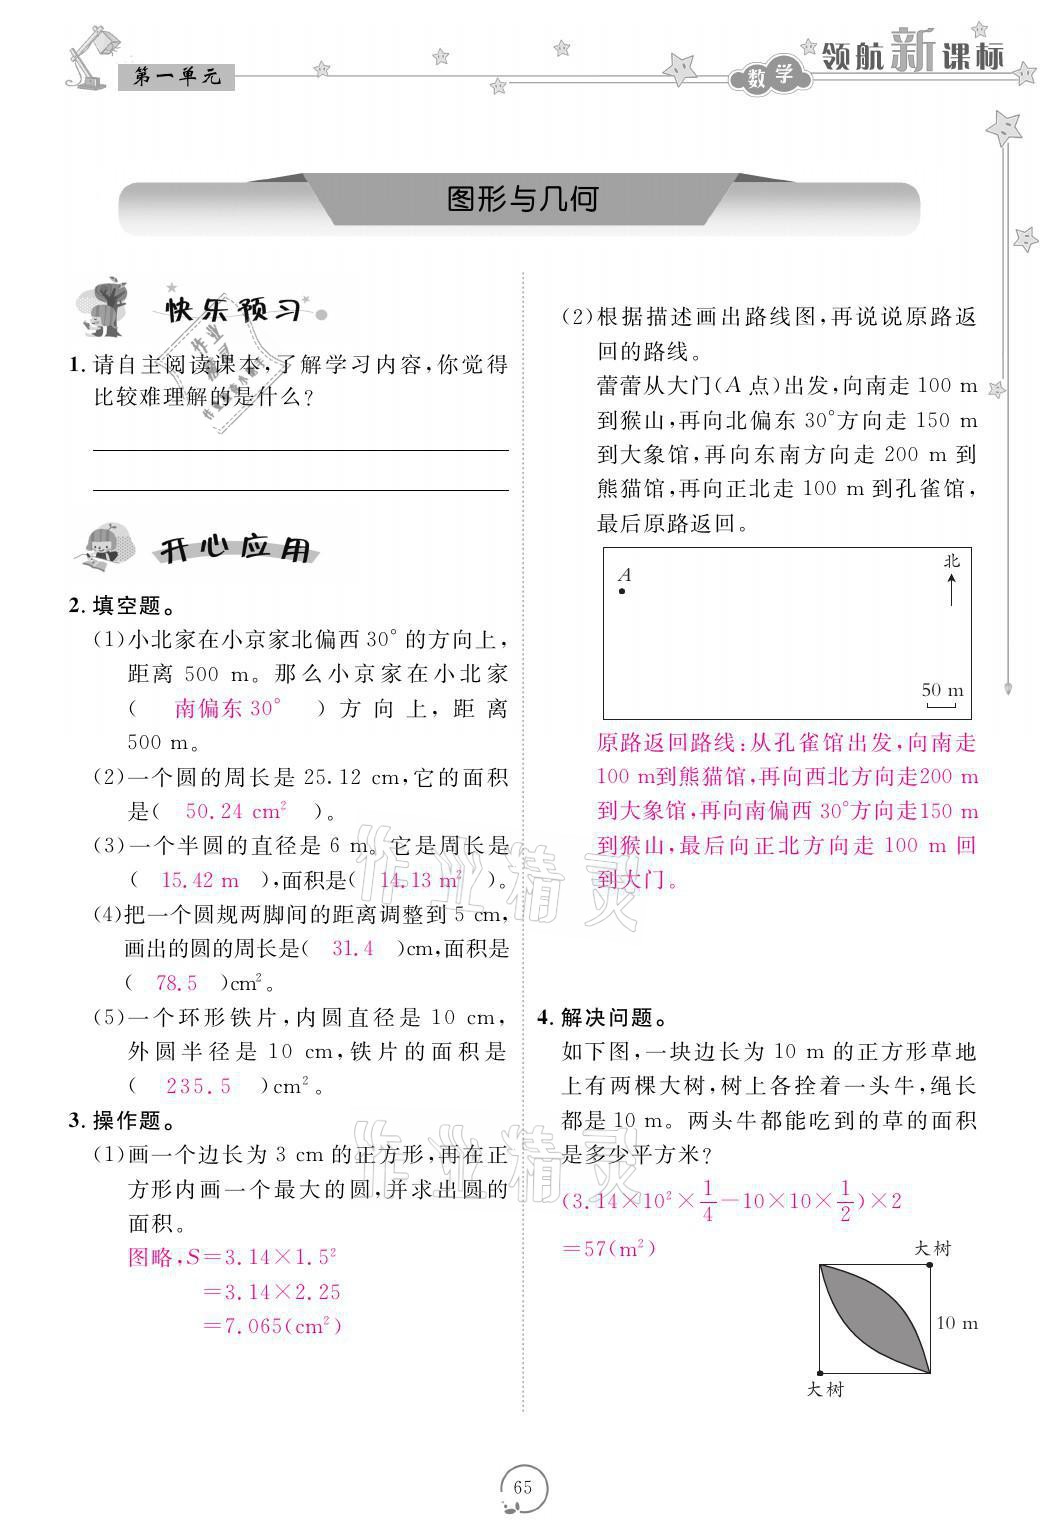 第一单元
数学
领航新课标
图形与几何
快乐预习
1. 请自主阅读课本,了解学习内容,你觉得
比较难理解的是什么?
开心应用
2. 填空题。
(1)小北家在小京家北偏西30°的方向上,
距离 500 m。那么小京家在小北家
( 南偏东30° )方向上,距离
500 m。
(2)一个圆的周长是 25.12 cm,它的面积
是( 50.24 cm² )。
(3)一个半圆的直径是 6 m。它是周长是
( 15.42 m ),面积是( 14.13 m² )。
(4)把一个圆规两脚间的距离调整到 5 cm,
画出的圆的周长是( 31.4 )cm,面积是
( 78.5 )cm²。
(5)一个环形铁片,内圆直径是 10 cm,
外圆半径是 10 cm,铁片的面积是
( 235.5 )cm²。
3. 操作题。
(1)画一个边长为 3 cm 的正方形,再在正
方形内画一个最大的圆,并求出圆的
面积。
图略,S=3.14×1.5²
=3.14×2.25
=7.065(cm²)
(2)根据描述画出路线图,再说说原路返
回的路线。
蕾蕾从大门(A 点)出发,向南走 100 m
到猴山,再向北偏东 30°方向走 150 m
到大象馆,再向东南方向走 200 m 到
熊猫馆,再向正北走 100 m 到孔雀馆,
最后原路返回。
A
北
50 m
原路返回路线:从孔雀馆出发,向南走
100 m到熊猫馆,再向西北方向走200 m
到大象馆,再向南偏西 30°方向走150 m
到猴山,最后向正北方向走 100 m 回
到大门。
4. 解决问题。
如下图,一块边长为 10 m 的正方形草地
上有两棵大树,树上各拴着一头牛,绳长
都是 10 m。两头牛都能吃到的草的面积
是多少平方米?
(3.14×10²×1/4-10×10×1/2)×2
=57(m²)
大树
10 m
大树
65
作业精灵
作业精灵